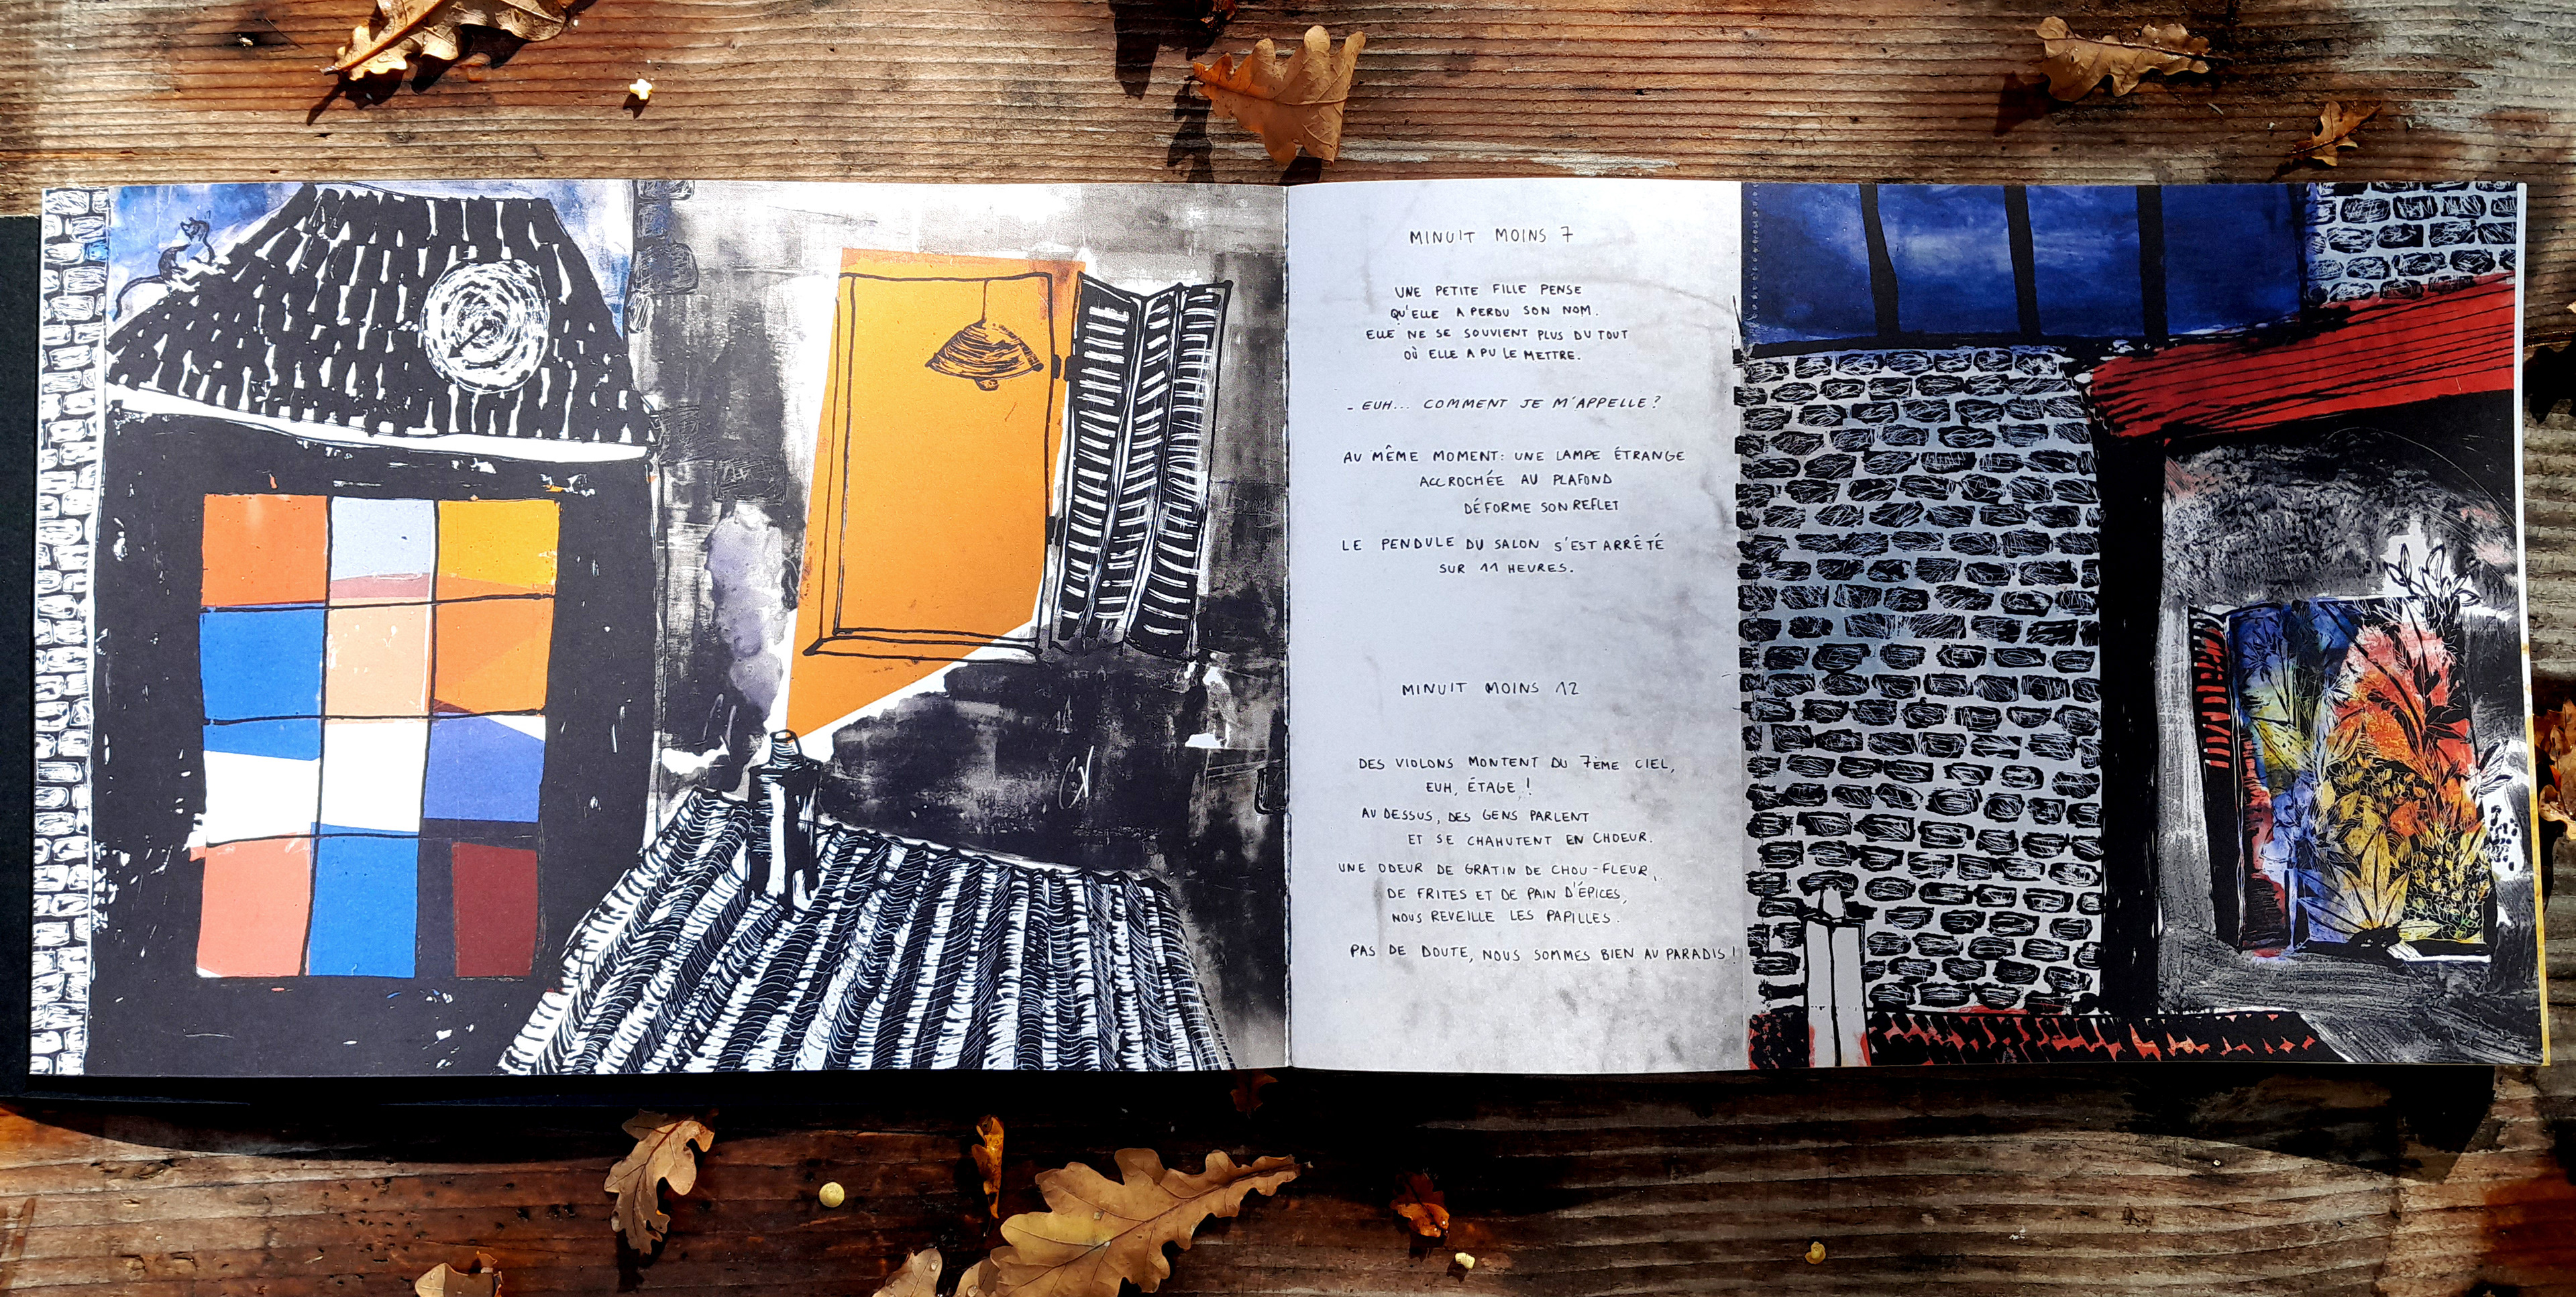 MINUIT MOINS 7
UNE PETITE FILLE PENSE
QU'ELLE A PERDU SON NOM.
ELLE NE SE SOUVIENT PLUS DU TOUT
OÙ ELLE A PU LE METTRE.
- EUH... COMMENT JE M'APPELLE?
AU MÊME MOMENT: UNE LAMPE ÉTRANGE
ACCROCHÉE AU PLAFOND
DÉFORME SON REFLET
LE PENDULE DU SALON S'EST ARRÊTÉ
SUR 11 HEURES.
MINUIT MOINS 12
DES VIOLONS MONTENT DU 7ÈME CIEL,
EUH, ÉTAGE!
AU DESSUS, DES GENS PARLENT
ET SE CHAHUTENT EN CHOEUR.
UNE ODEUR DE GRATIN DE CHOU-FLEUR,
DE FRITES ET DE PAIN D'ÉPICES,
NOUS REVEILLE LES PAPILLES.
PAS DE DOUTE, NOUS SOMMES BIEN AU PARADIS!